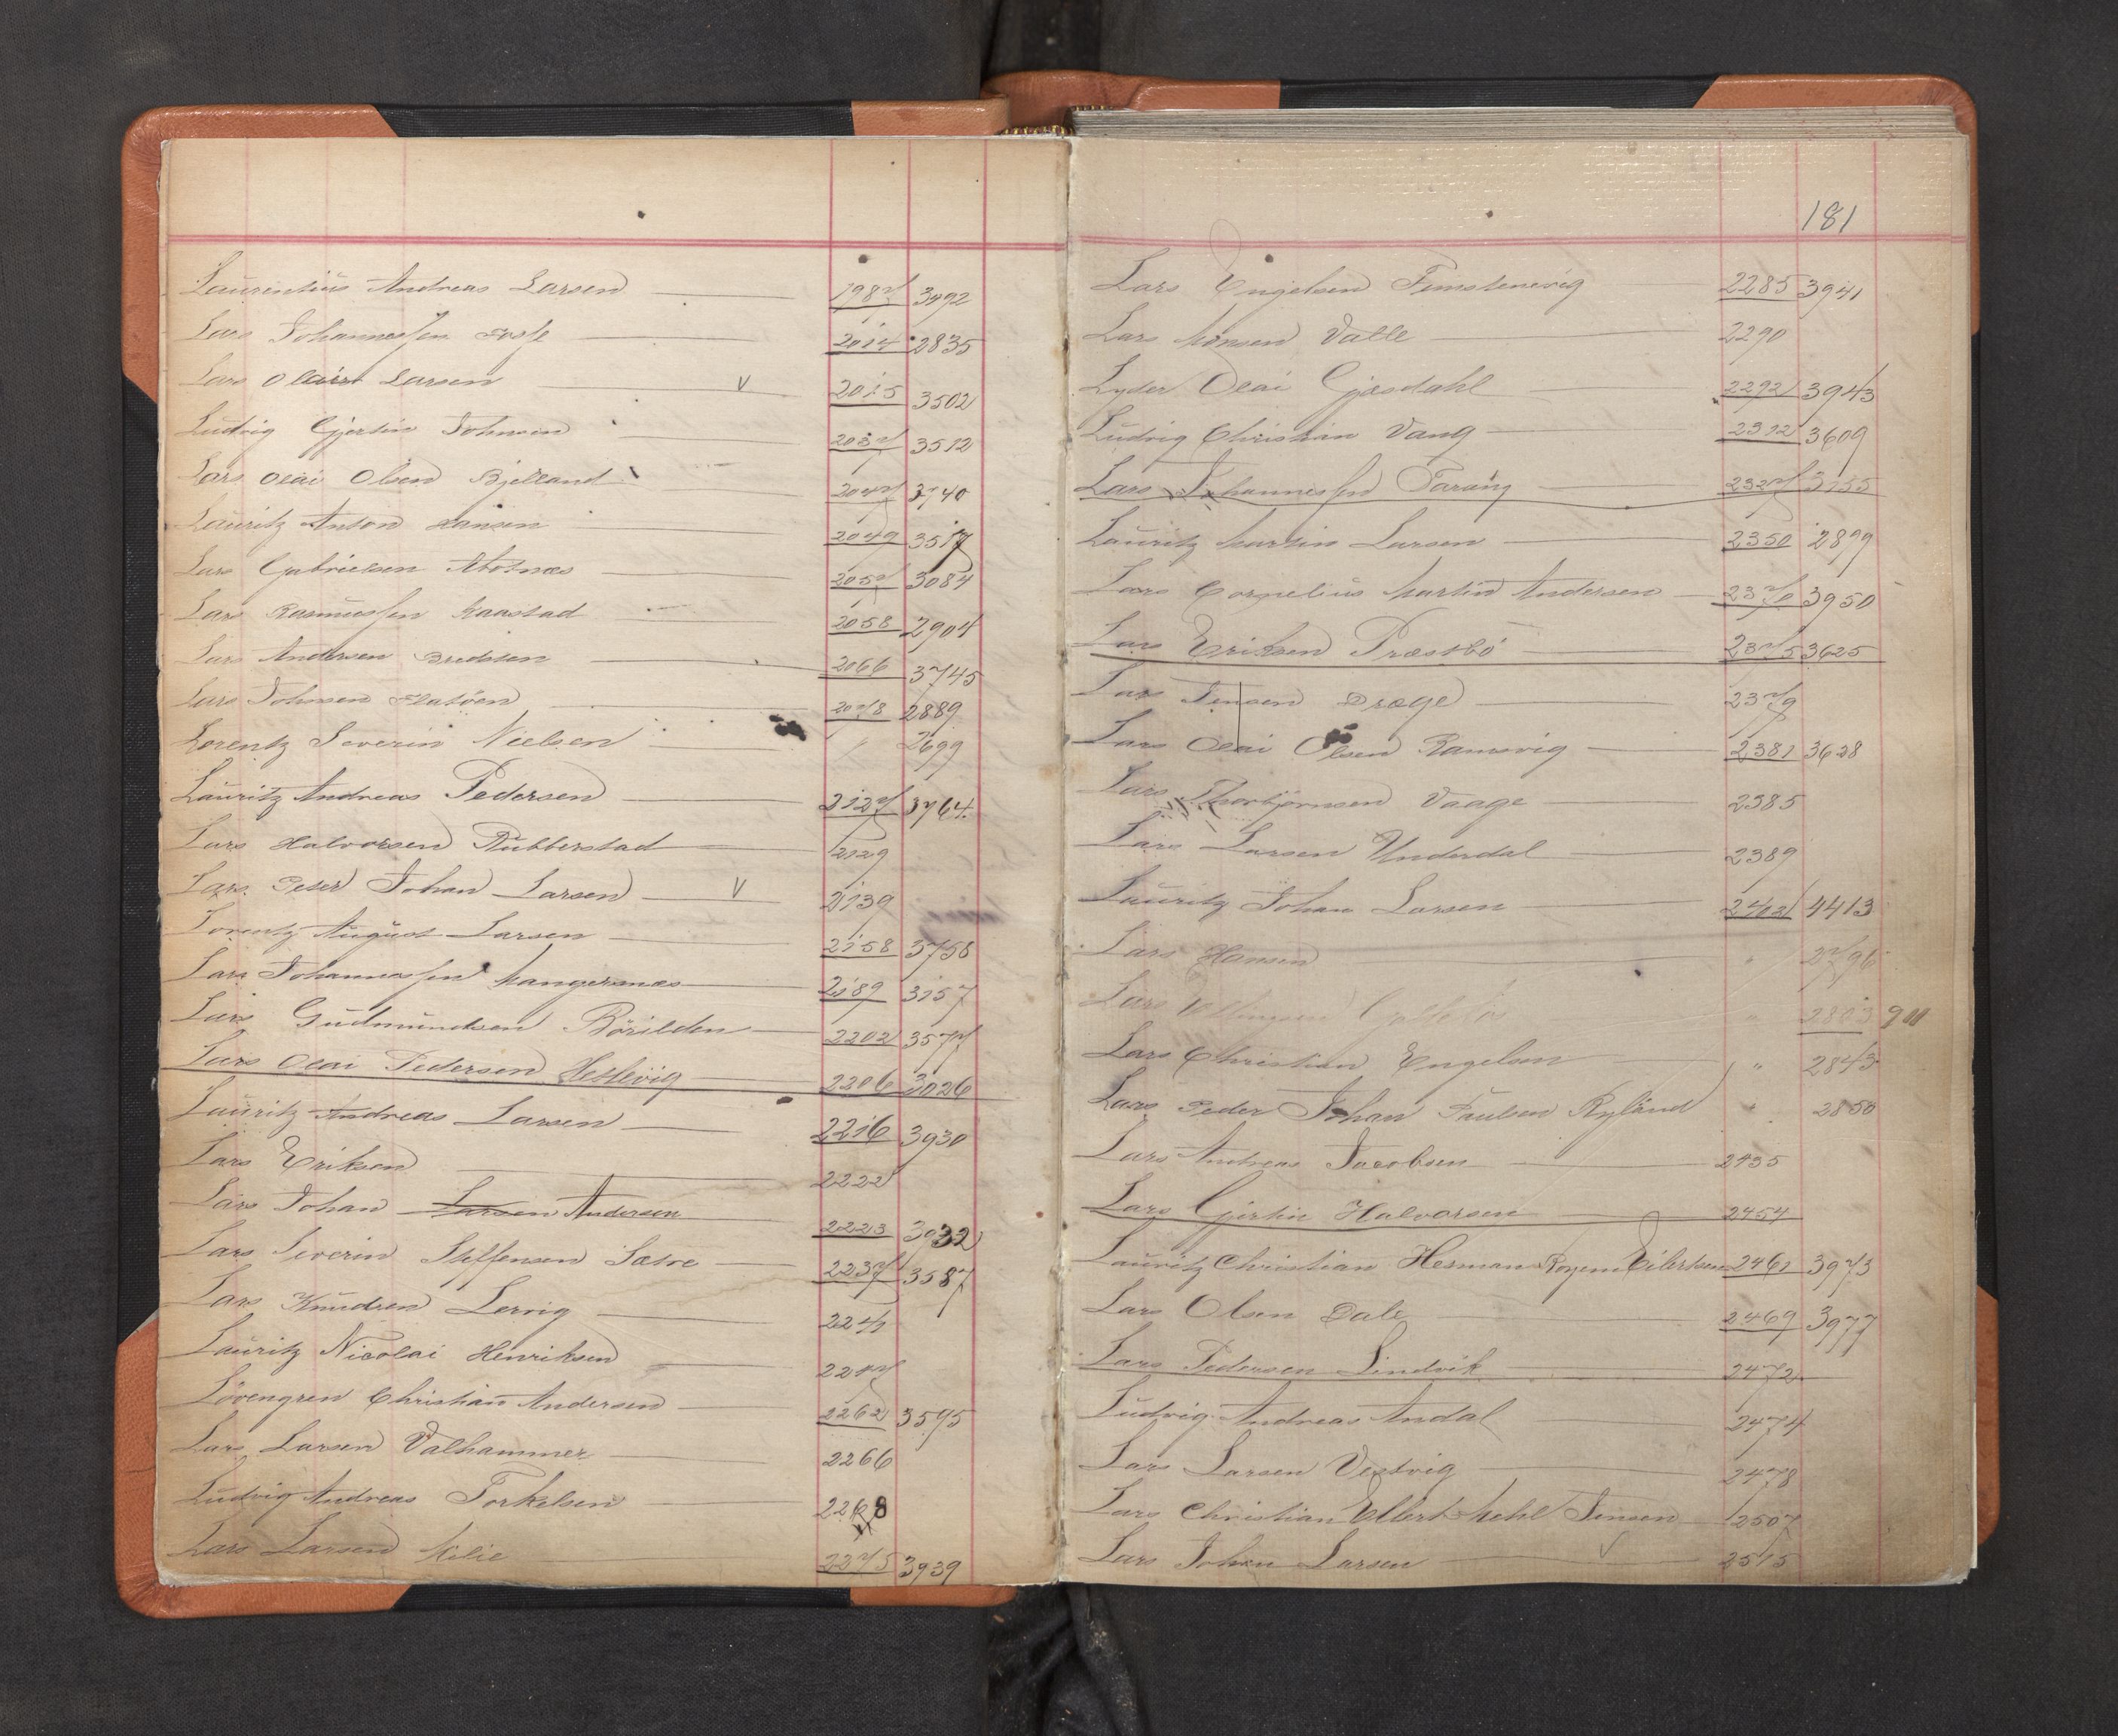 Laurentius Andreas Larsen 1987 3492
Lars Johannessen Fosse 2014 2835
Lars Olai Larsen V 2015 3502
Ludvig Gjertin Johnsen 2037 3512
Lars Olai Olsen Bjelland 2047 3740
Lauritz Anton Hansen 2049 3517
Lars Gabrielsen 2057 3084
Lars Rasmussen Kaastad 2058 2904
Lars Andersen Bredesen 2066 3745
Lars Johnsen Flatöen 2078 2889
Lorentz Severin Nielsen " 2699
Lauritz Andreas Pedersen 2127 3764
Lars Halvorsen Rubberstad 2129
Lars Peter Johan Larsen V 2139
Lorentz August Larsen 2158 3758
Lars Johannessen Mangersnæs 2189 3157
Lars Gudmundsen Börilden 2202 3577
Lars Olai Pedersen Hetlevig 2206 3026
Lauritz Andreas Larsen 2216 3930
Lars Eriksen 2222
Lars Johan Larsen Andersen 2223 3932
Lars Severin Steffensen Sætre 2237 3587
Lars Knudsen Lervig 2241
Lauritz Nicolai Henriksen 2247
Lövengren Christian Andersen 2262 3595
Lars Larsen Valhammer 2266
Ludvig Andreas Torkelsen 2268
Lars Larsen Milie 2275 3939
181
Lars Engelsen Femstenevig 2285 3941
Lars Monsen Valle 2290
Lyder Olai Gjesdahl 2292 3943
Ludvig Christian Vang 2312 3609
Lars Johannessen Tarang 2327 3155
Lauritz Martin Larsen 2350 2899
Lars Cornelius Martin Andersen 2370 3950
Lars Eriksen Præstbö 2375 3625
Lars Jensen Drage 2379
Lars Olai Olsen Ramsvig 2381 3628
Lars Thorbjörnsen Vaage 2385
Lars Larsen Underdal 2389
Lauritz Johan Larsen 2402 4413
Lars Hansen " 2796
Lars " 2803 911
Lars Christian Engelsen " 2843
Lars Peder Johan Paulsen Ryland " 2850
Lars Andreas Jacobsen 2435
Lars Gjertin Halvorsen 2454
Lauritz Christian Herman Eilertsen 2461 3973
Lars Olsen Dale 2469 3977
Lars Pedersen Lindvik 2472
Ludvig Andreas Andal 2474
Lars Larsen Vestvig 2478
Lars Christian Ellert Mehl Jensen 2507
Lars Johan Larsen V 2515